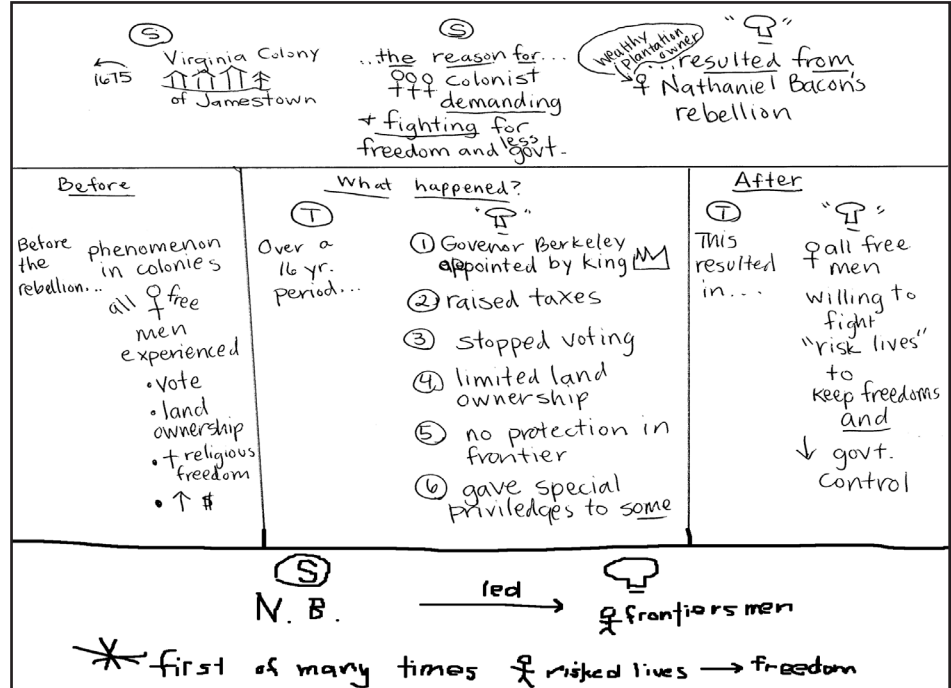 S
1675
Virginia Colony
of Jamestown
S
...the reason for...
colonist
demanding
+ fighting for
freedom and less govt.
" "
Wealthy
Plantation
owner
...resulted from
Nathaniel Bacon's
rebellion
Before
Before
the
rebellion...
phenomenon
in colonies
all free
men
experienced
• vote
• land
ownership
• + religious
freedom
• ↑ $
What happened?
T
Over a
16 yr.
period...
" "
① Govenor Berkeley
appointed by king
② raised taxes
③ stopped voting
④ limited land
ownership
⑤ no protection in
frontier
⑥ gave special
priviledges to some
After
T
This
resulted
in....
" "
all free
men
willing to
fight
"risk lives"
to
keep freedoms
and
↓ govt.
control
S
N. B.
led
→
frontiorsmen
* first of many times risked lives → freedom